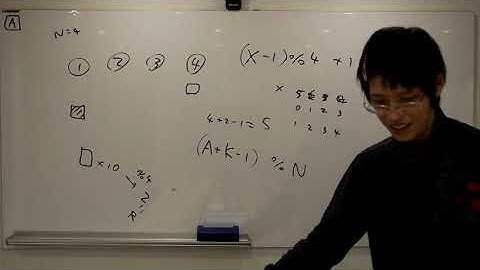 A
N=4
① ② ③ ④
(X-1)%4 +1
x
0 1 2 3
1 2 3 4
4+2-1=5
(A+K-1) % N
×10
%4
2